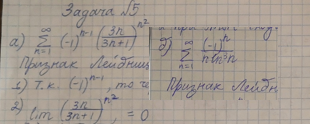 Задача №5
а) ∑_{n=1}^{∞} (-1)^{n-1} (3n/(3n+1))^{n²}
Признак Лейбниц
1) Т.к. (-1)^{n-1}, то
2) lim (3n/(3n+1))^{n²} = 0
б) ∑_{n=1}^{∞} (-1)^n/(n ln³n)
Признак Лейбн